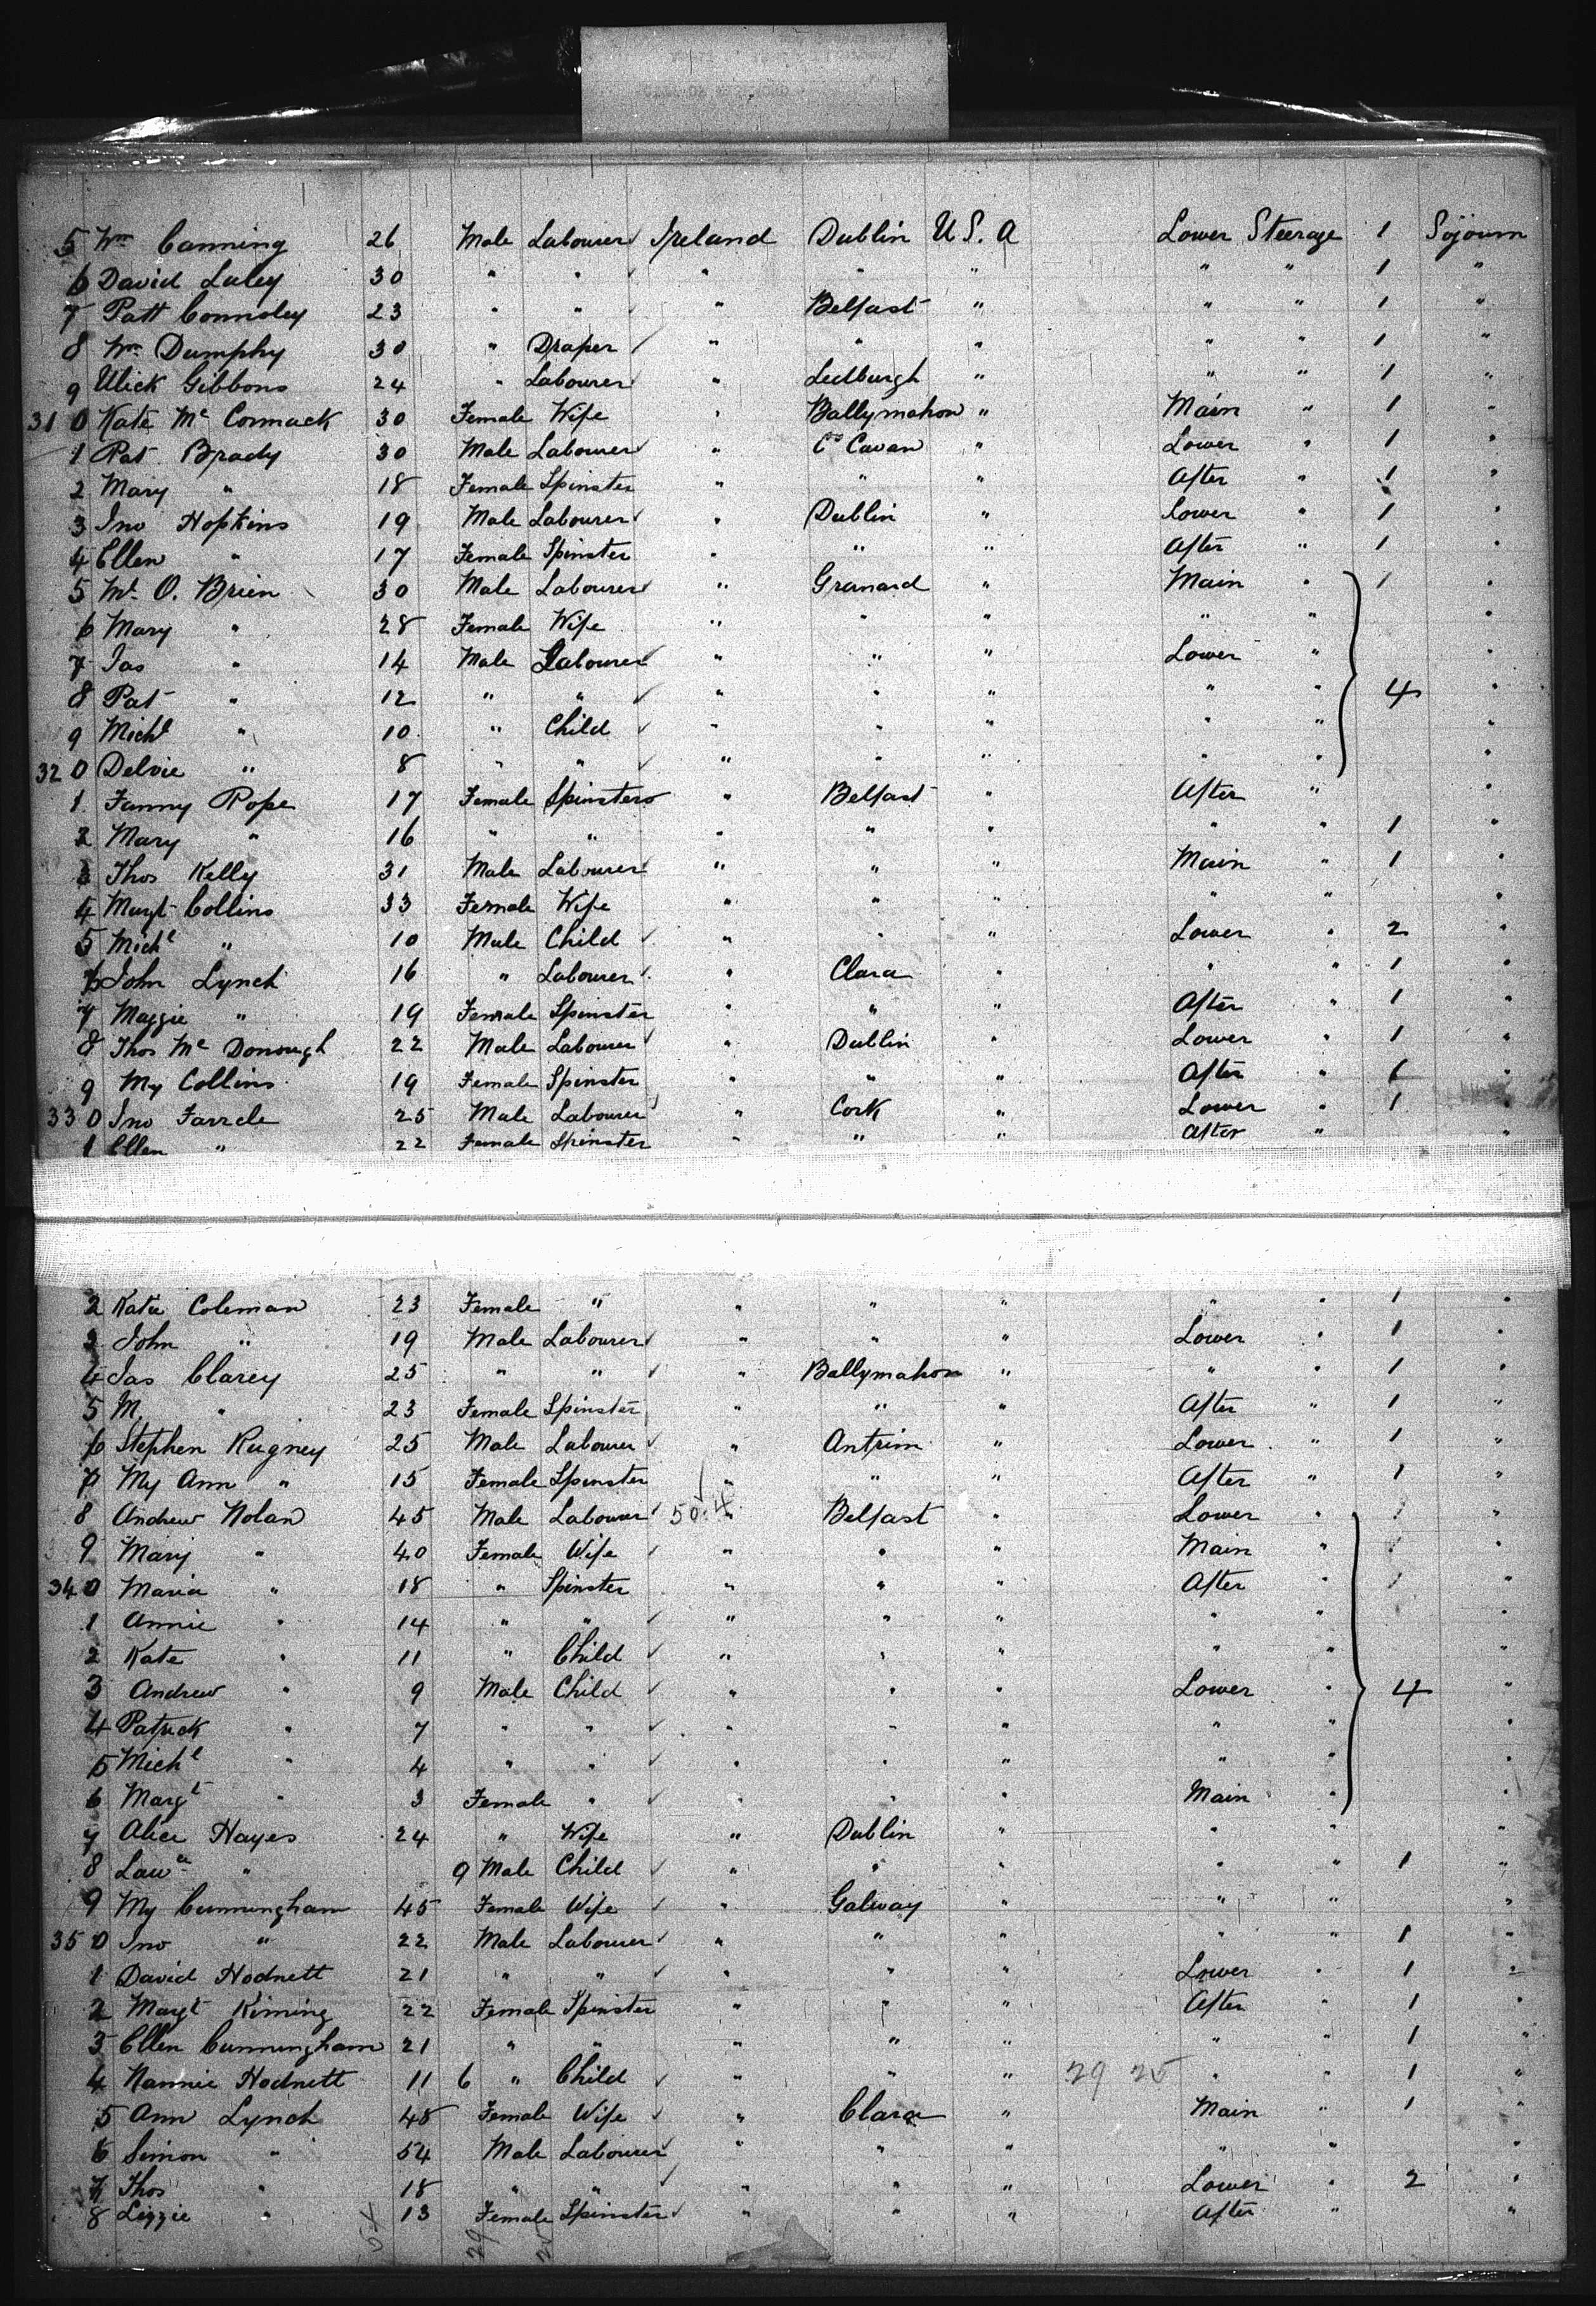 5 Wm Canning 26 Male Labourer Ireland Dublin U.S.A Lower Steerage 1 Sojourn
6 David Luley 30 " " " " " " " 1 "
7 Patt Connoley 23 " " " Belfast " " " 1 "
8 Wm Dumphy 30 " Draper " " " " " 1 "
9 Ulick Gibbons 24 " Labourer " Ledburgh " " " 1 "
310 Kate Mc Cormack 30 Female Wife " Ballymahon " Main " 1 "
1 Pat Brady 30 Male Labourer " Co Cavan " Lower " 1 "
2 Mary " 18 Female Spinster " " " After " 1 "
3 Jno Hopkins 19 Male Labourer " Dublin " Lower " 1 "
4 Ellen " 17 Female Spinster " " " After " 1 "
5 Mt O. Brien 30 Male Labourer " Granard " Main " 1 "
6 Mary " 28 Female Wife " " " " " "
7 Jas " 14 Male Labourer " " " Lower " "
8 Pat " 12 " " " " " " " 4 "
9 Michl " 10 " Child " " " " " "
320 Delvie " 8 " " " " " " " "
1 Fanny Pope 17 Female Spinsters " Belfast " After " "
2 Mary " 16 " " " " " " " 1 "
3 Thos Kelly 31 Male Labourer " " " Main " 1 "
4 Margt Collins 33 Female Wife " " " " " "
5 Michl " 10 Male Child " " " Lower " 2 "
6 John Lynch 16 " Labourer " Clara " " " 1 "
7 Maggie " 19 Female Spinster " " " After " 1 "
8 Thos Mc Donough 22 Male Labourer " Dublin " Lower " 1 "
9 My Collins 19 Female Spinster " " " After " 1 "
330 Jno Farrele 25 Male Labourer " Cork " Lower " 1 "
1 Ellen " 22 Female Spinster " " " After " "
2 Kate Coleman 23 Female " " " " " " 1 "
3 John " 19 Male Labourer " " " Lower " 1 "
4 Jas Clarey 25 " " " Ballymahon " " " 1 "
5 M. " 23 Female Spinster " " " After " 1 "
6 Stephen Rugney 25 Male Labourer " Antrim " Lower " 1 "
7 My Ann " 15 Female Spinster " " " After " 1 "
8 Andrew Nolan 45 Male Labourer 50.4 " Belfast " Lower " "
9 Mary " 40 Female Wife " " " Main " "
340 Maria " 18 " Spinster " " " After " "
1 Annie " 14 " " " " " " " "
2 Kate " 11 " Child " " " " " "
3 Andrew " 9 Male Child " " " Lower " 4 "
4 Patrick " 7 " " " " " " " "
5 Michl " 4 " " " " " " " "
6 Margt " 3 Female " " " " Main " "
7 Alice Hayes 24 " Wife " Dublin " " " "
8 Lawce " 9 Male Child " " " " " 1 "
9 My Cunningham 45 Female Wife " Galway " " " "
350 Jno " 22 Male Labourer " " " " " 1 "
1 David Hodnett 21 " " " " " Lower " 1 "
2 Margt Kiming 22 Female Spinster " " " After " 1 "
3 Ellen Cunningham 21 " " " " " " " 1 "
4 Nannie Hodnett 11 6 " Child " " " 29 25 " " 1 "
5 Ann Lynch 48 Female Wife " Clara " Main " 1 "
6 Simon " 54 Male Labourer " " " " " "
7 Thos " 18 " " " " " Lower " 2 "
8 Lizzie " 13 Female Spinster " " " After " "
54 29 25